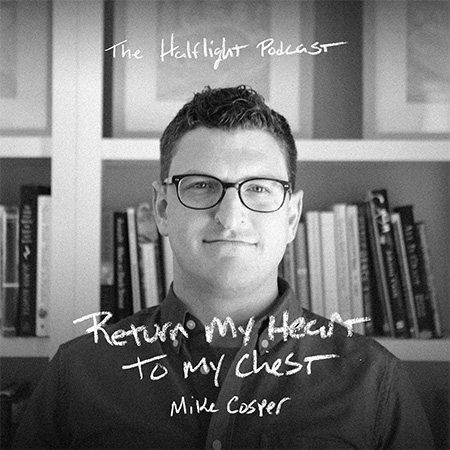 The Halflight Podcast
Return My Heart
To My Chest
Mike Cosper